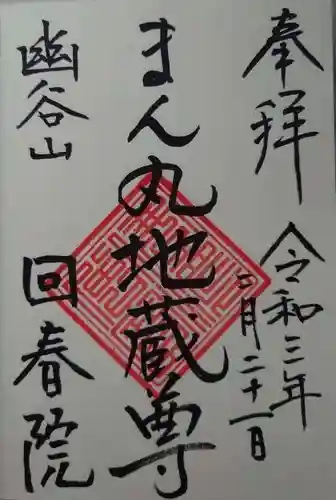 奉拝
令和三年
月二十一日
まん丸地蔵尊
幽谷山
回春院